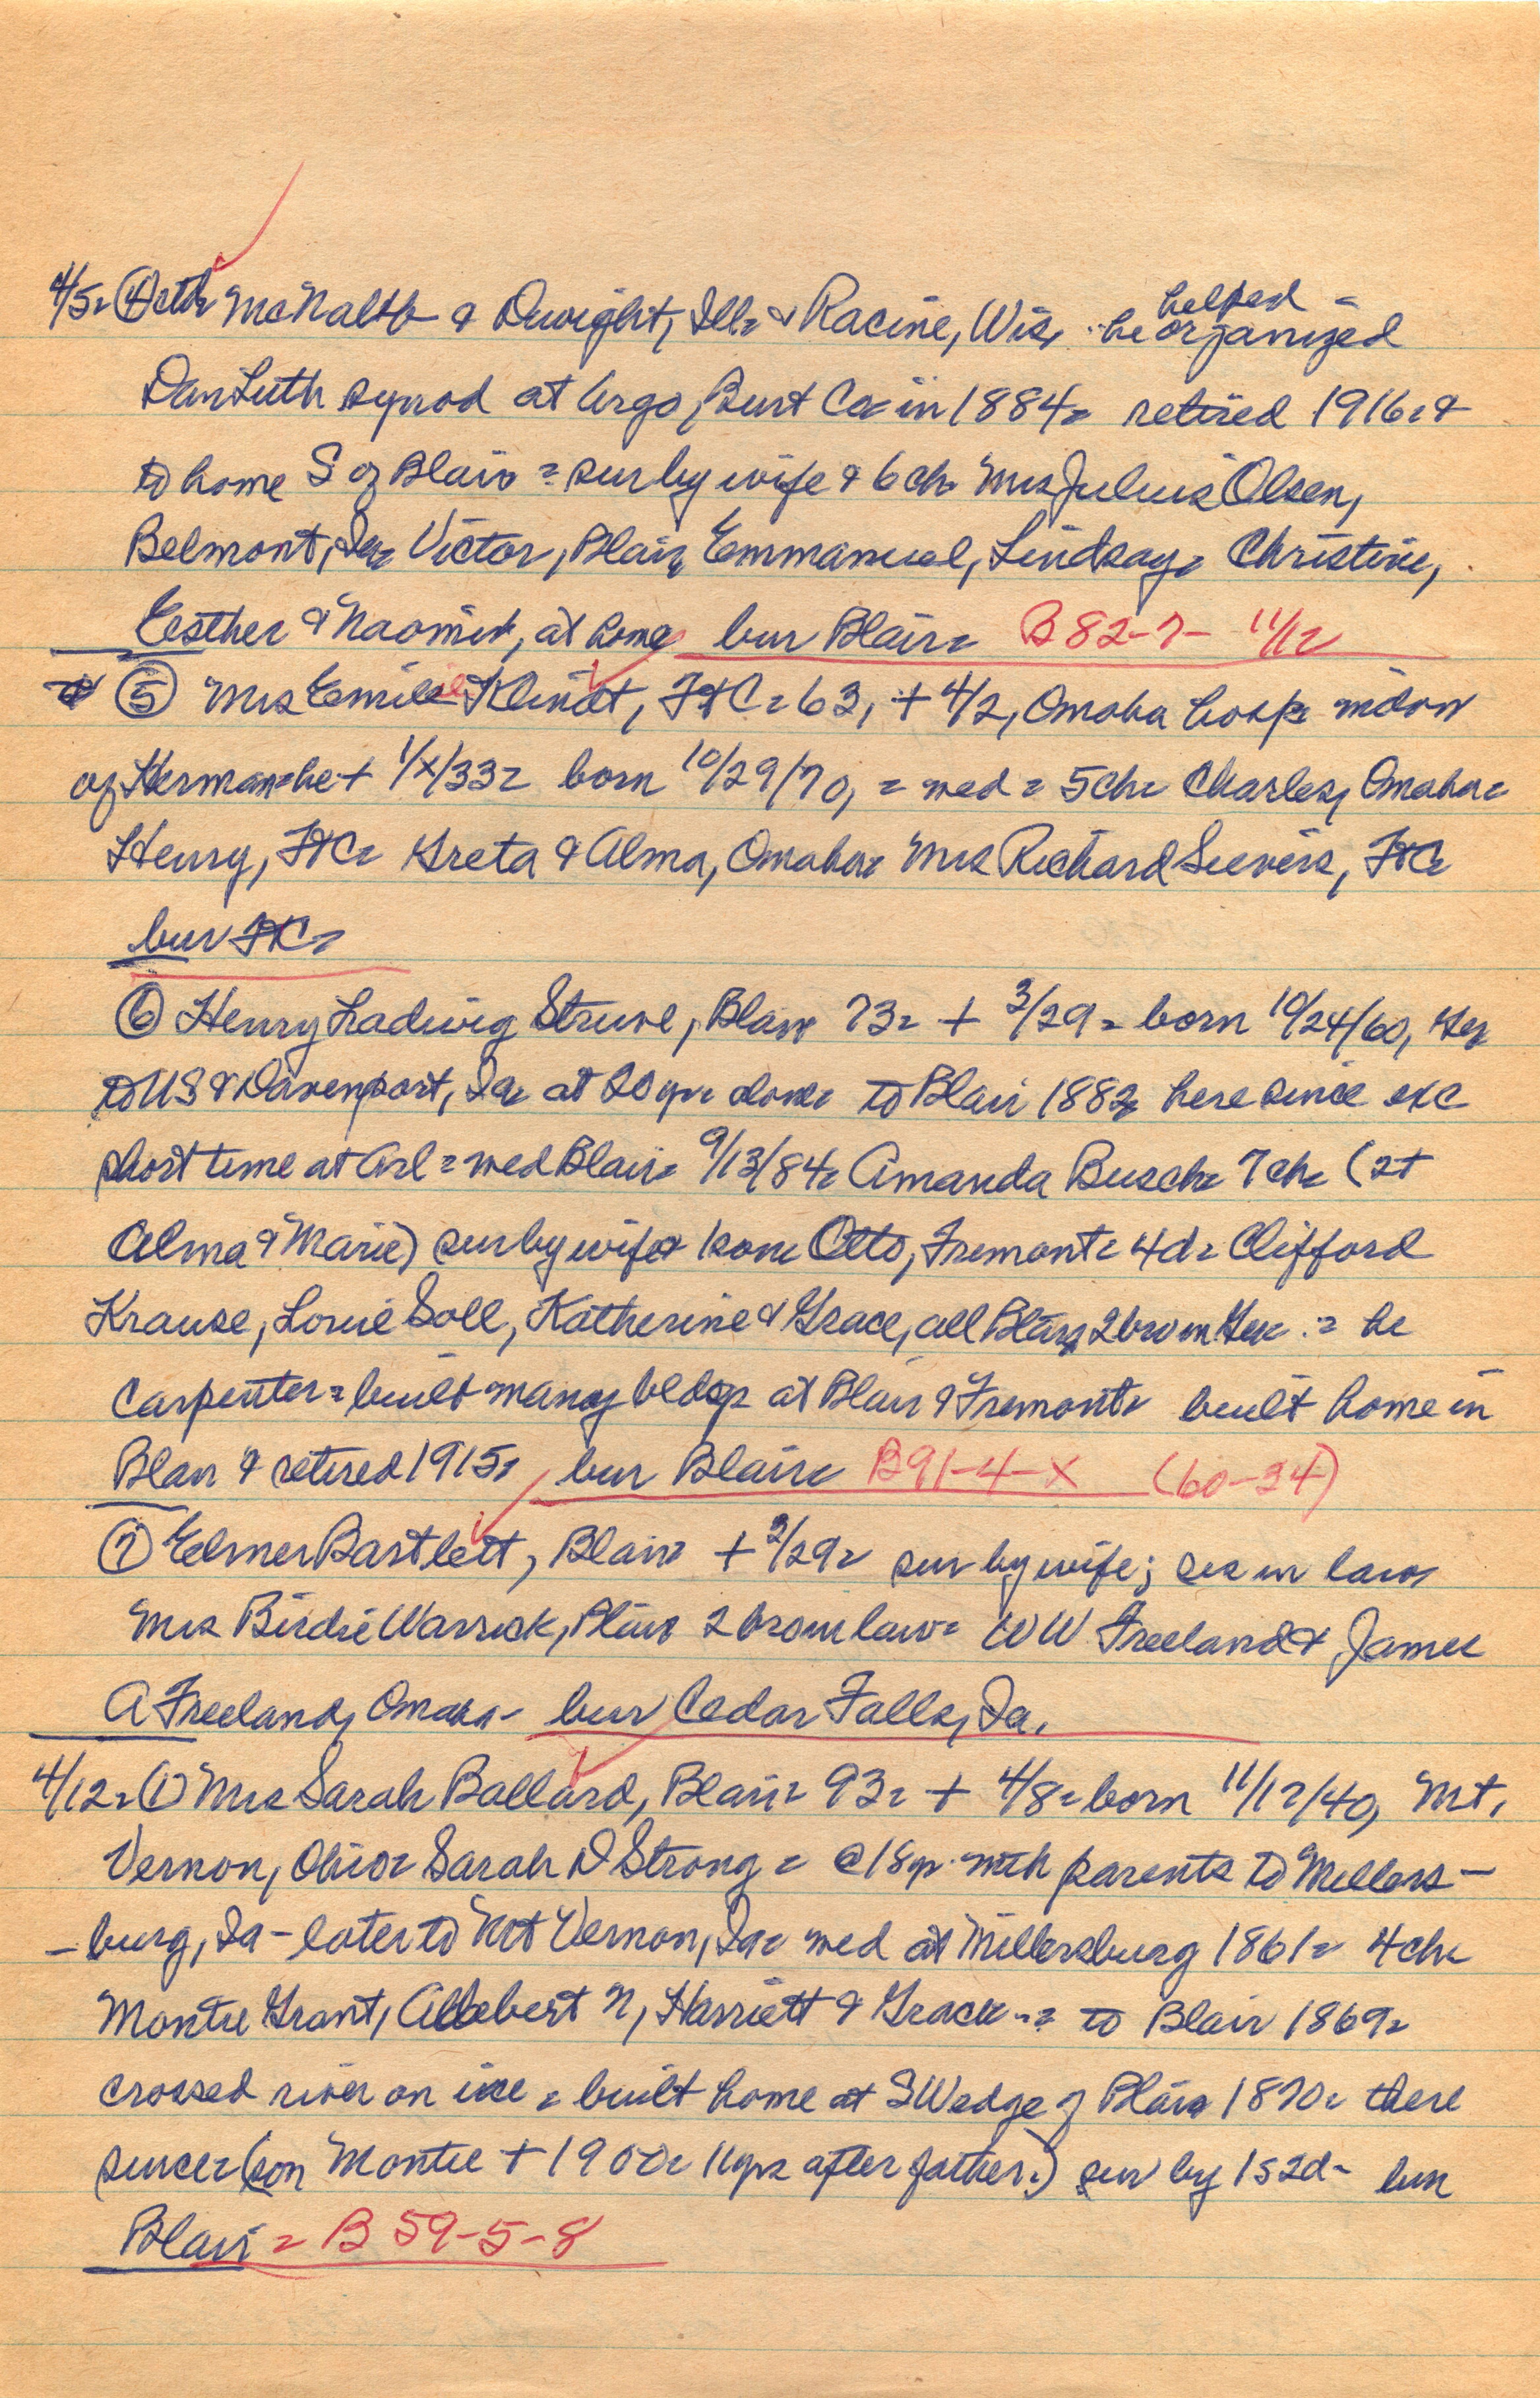 4/5- ④ctd- McNabb & Dwight, Ill- & Racine, Wis, - he helped - organized
Dan Luth synod at Argo, Burt Co- in 1884- retired 1916- &
to home S of Blair = sur by wife & 6 ch- Mrs Julius Olsen,
Belmont, Ia- Victor, Blair, Emmanuel, Lindsay- Christine,
Esther & Naomi, at home bur Blair- B 82-7- 11/12
⑤ Mrs Emilie Klindt, FtC- 63, + 4/2, Omaha hosp- widow
of Herman-he + 1/x/33- born 10/29/70, = wed = 5ch- Charles, Omaha-
Henry, FtC- Greta & Alma, Omaha- Mrs Richard Sievers, FtC-
bur FtC-
⑥ Henry Ludwig Struve, Blair 73- + 3/29- born 10/24/60, Ger
to US & Davenport, Ia- at 20 yr- alone- to Blair 1882- here since exc
short time at Arl = wed Blair- 9/13/84- Amanda Busch- 7 ch- (2+
Alma & Marie) sur by wife & 1 son- Otto, Fremont- 4d- Clifford
Krause, Louie Soll, Katherine & Grace, all Blair, 2 bro in Ger - = he
carpenter = built many bldgs at Blair & Fremont- built home in
Blair & retired 1915- bur Blair- B91-4-X (60-34)
⑦ Elmer Bartlett, Blair + 3/29- sur by wife; sis in law
Mrs Birdie Warrick, Blair 2 bro in law- WW Freeland & James
A Freeland, Omaha- bur Cedar Falls, Ia.
4/12- ① Mrs Sarah Ballard, Blair- 93- + 4/8- born 11/17/40, Mt.
Vernon, Ohio- Sarah D Strong - @18 yr- with parents to Millers-
-burg, Ia - later to Mt Vernon, Ia- wed at Millersburg 1861- 4 ch-
Montie Grant, Albert N, Harriett & Grace - = to Blair 1869-
crossed river on ice - built home at SW edge of Blair 1870- there
since- (son Montie + 1900- 11 yrs after father.) sur by 1s 2d- bur
Blair - B 59-5-8